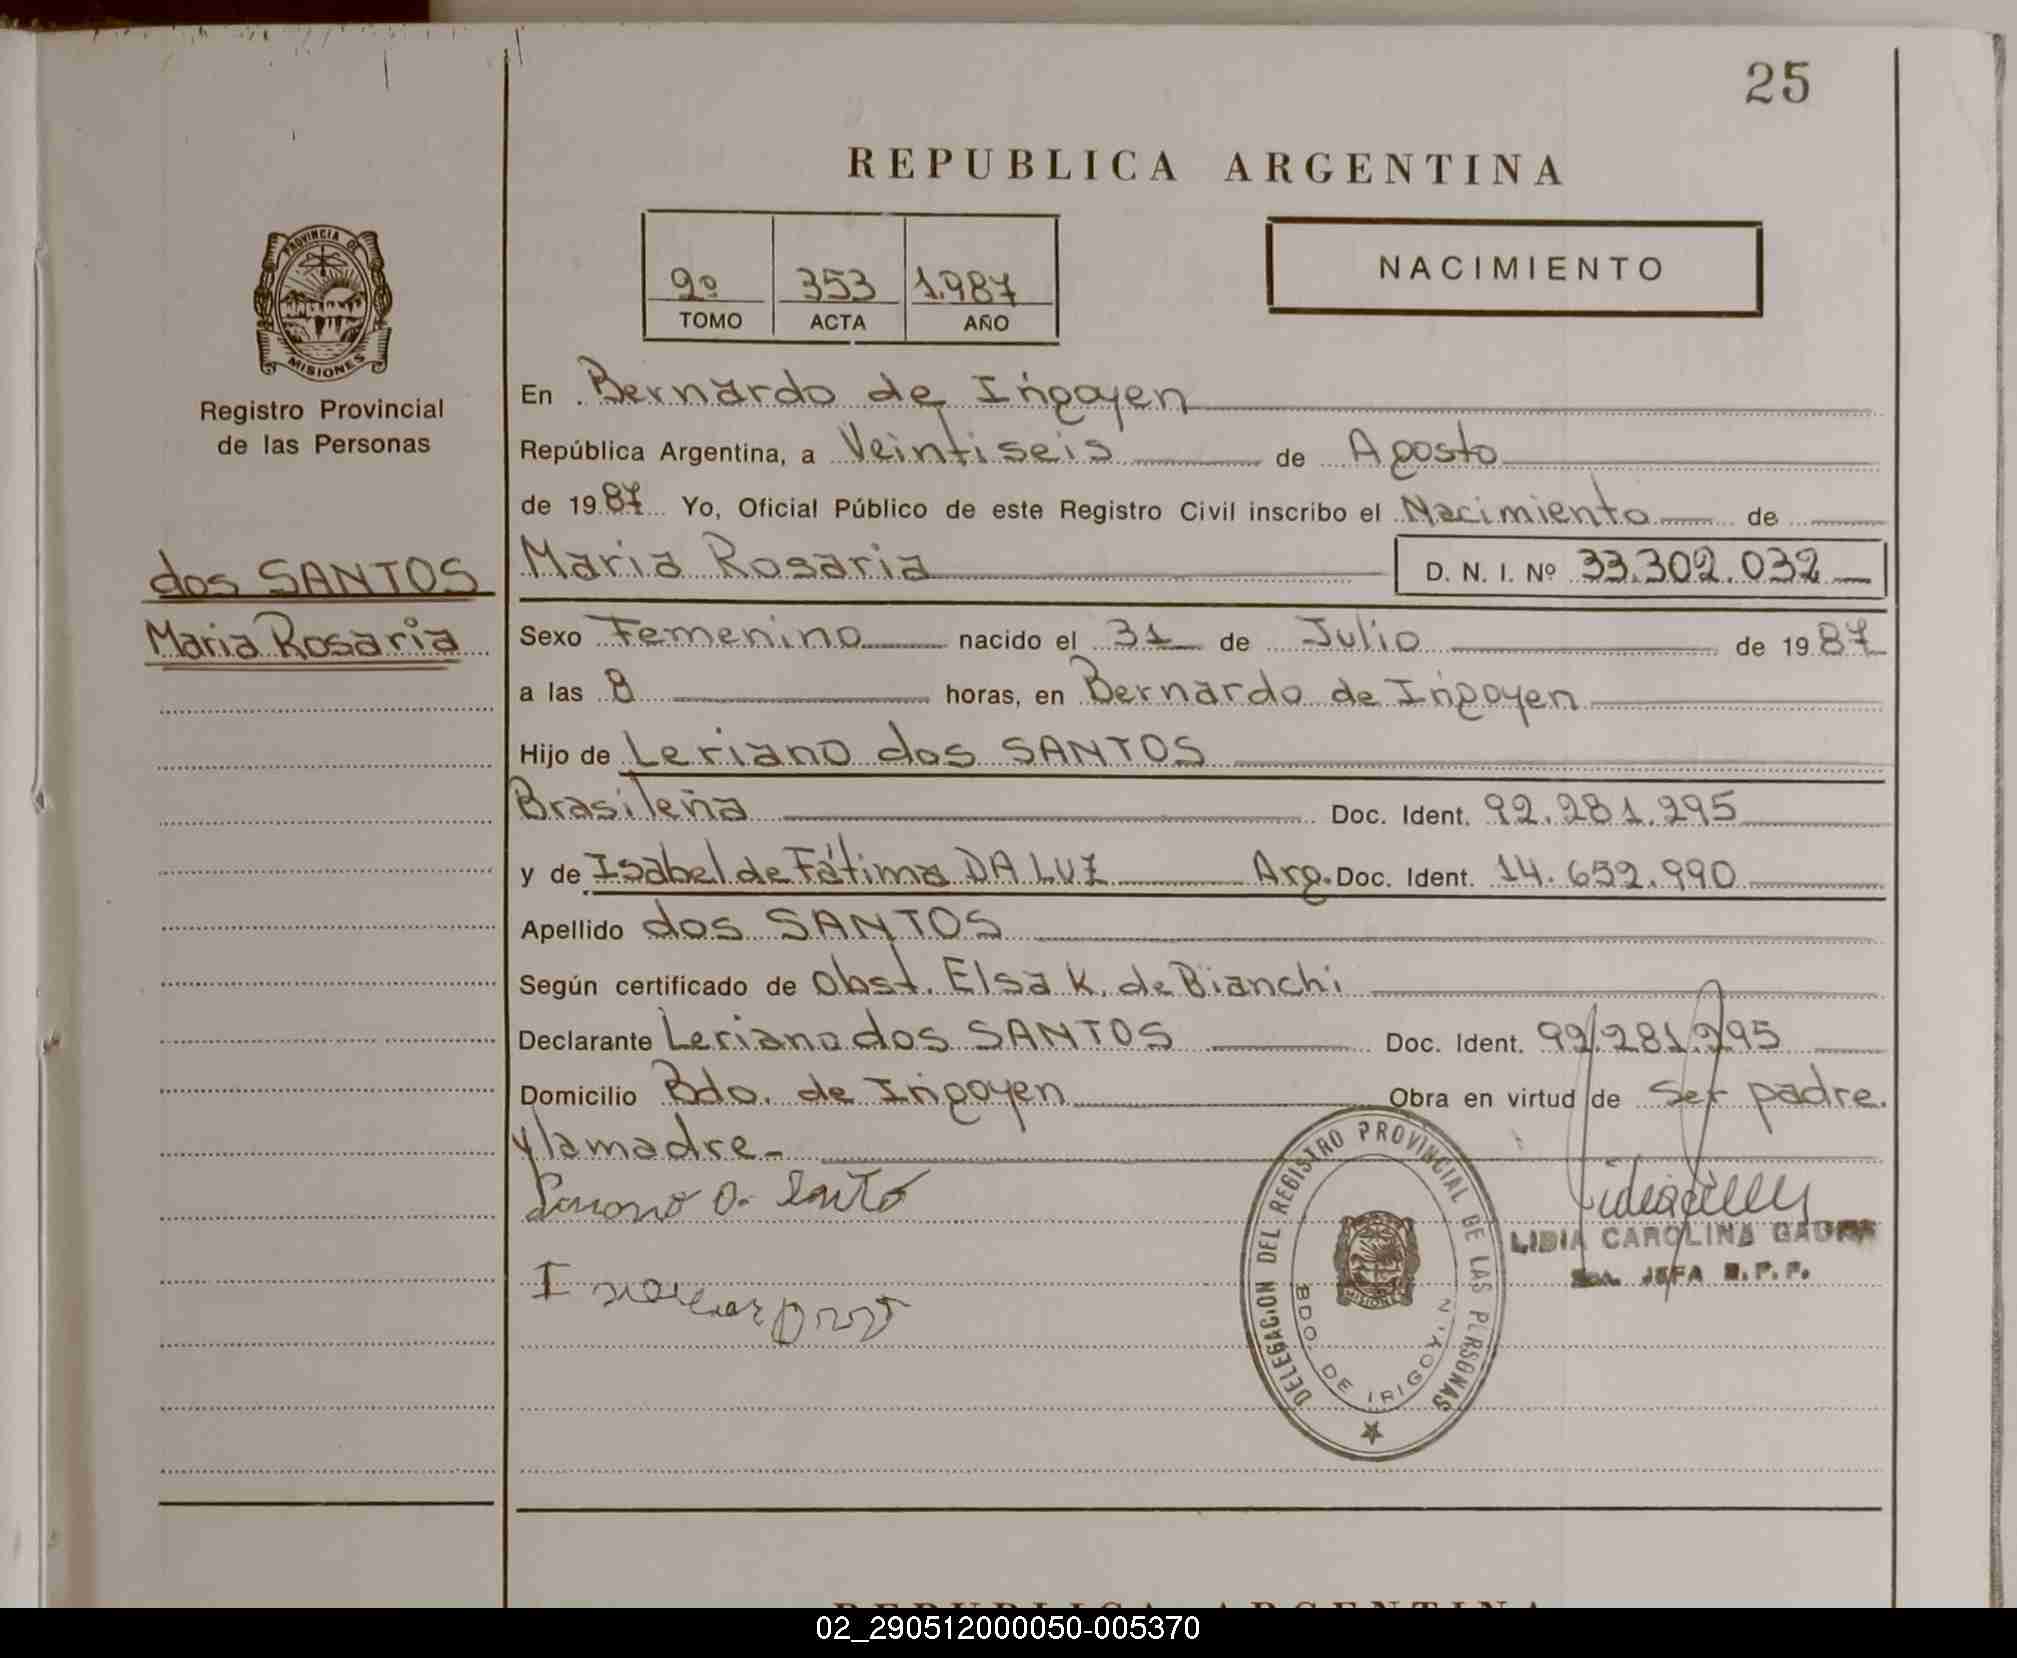 25
REPUBLICA ARGENTINA
2º 353 1.987
TOMO ACTA AÑO
NACIMIENTO
PROVINCIA DE
MISIONES
Registro Provincial
de las Personas
dos SANTOS
Maria Rosaria
En Bernardo de Irigoyen
República Argentina, a Veintiseis de Agosto
de 1987 Yo, Oficial Público de este Registro Civil inscribo el Nacimiento de
Maria Rosaria D. N. I. Nº 33.302.032
Sexo Femenino nacido el 31 de Julio de 1987
a las 8 horas, en Bernardo de Irigoyen
Hijo de Leriano dos SANTOS
Brasileña Doc. Ident. 92.281.295
y de Isabel de Fátima DA LUZ Arg. Doc. Ident. 14.652.990
Apellido dos SANTOS
Según certificado de Obst. Elsa K. de Bianchi
Declarante Leriano dos SANTOS Doc. Ident. 92.281.295
Domicilio Bdo. de Irigoyen Obra en virtud de ser padre.
y la madre-
DELEGACION DEL REGISTRO PROVINCIAL DE LAS PERSONAS
MISIONES
BDO. DE IRIGOYEN
LIDIA CAROLINA
JEFA R. P. P.
REPUBLICA ARGENTINA
02_290512000050-005370